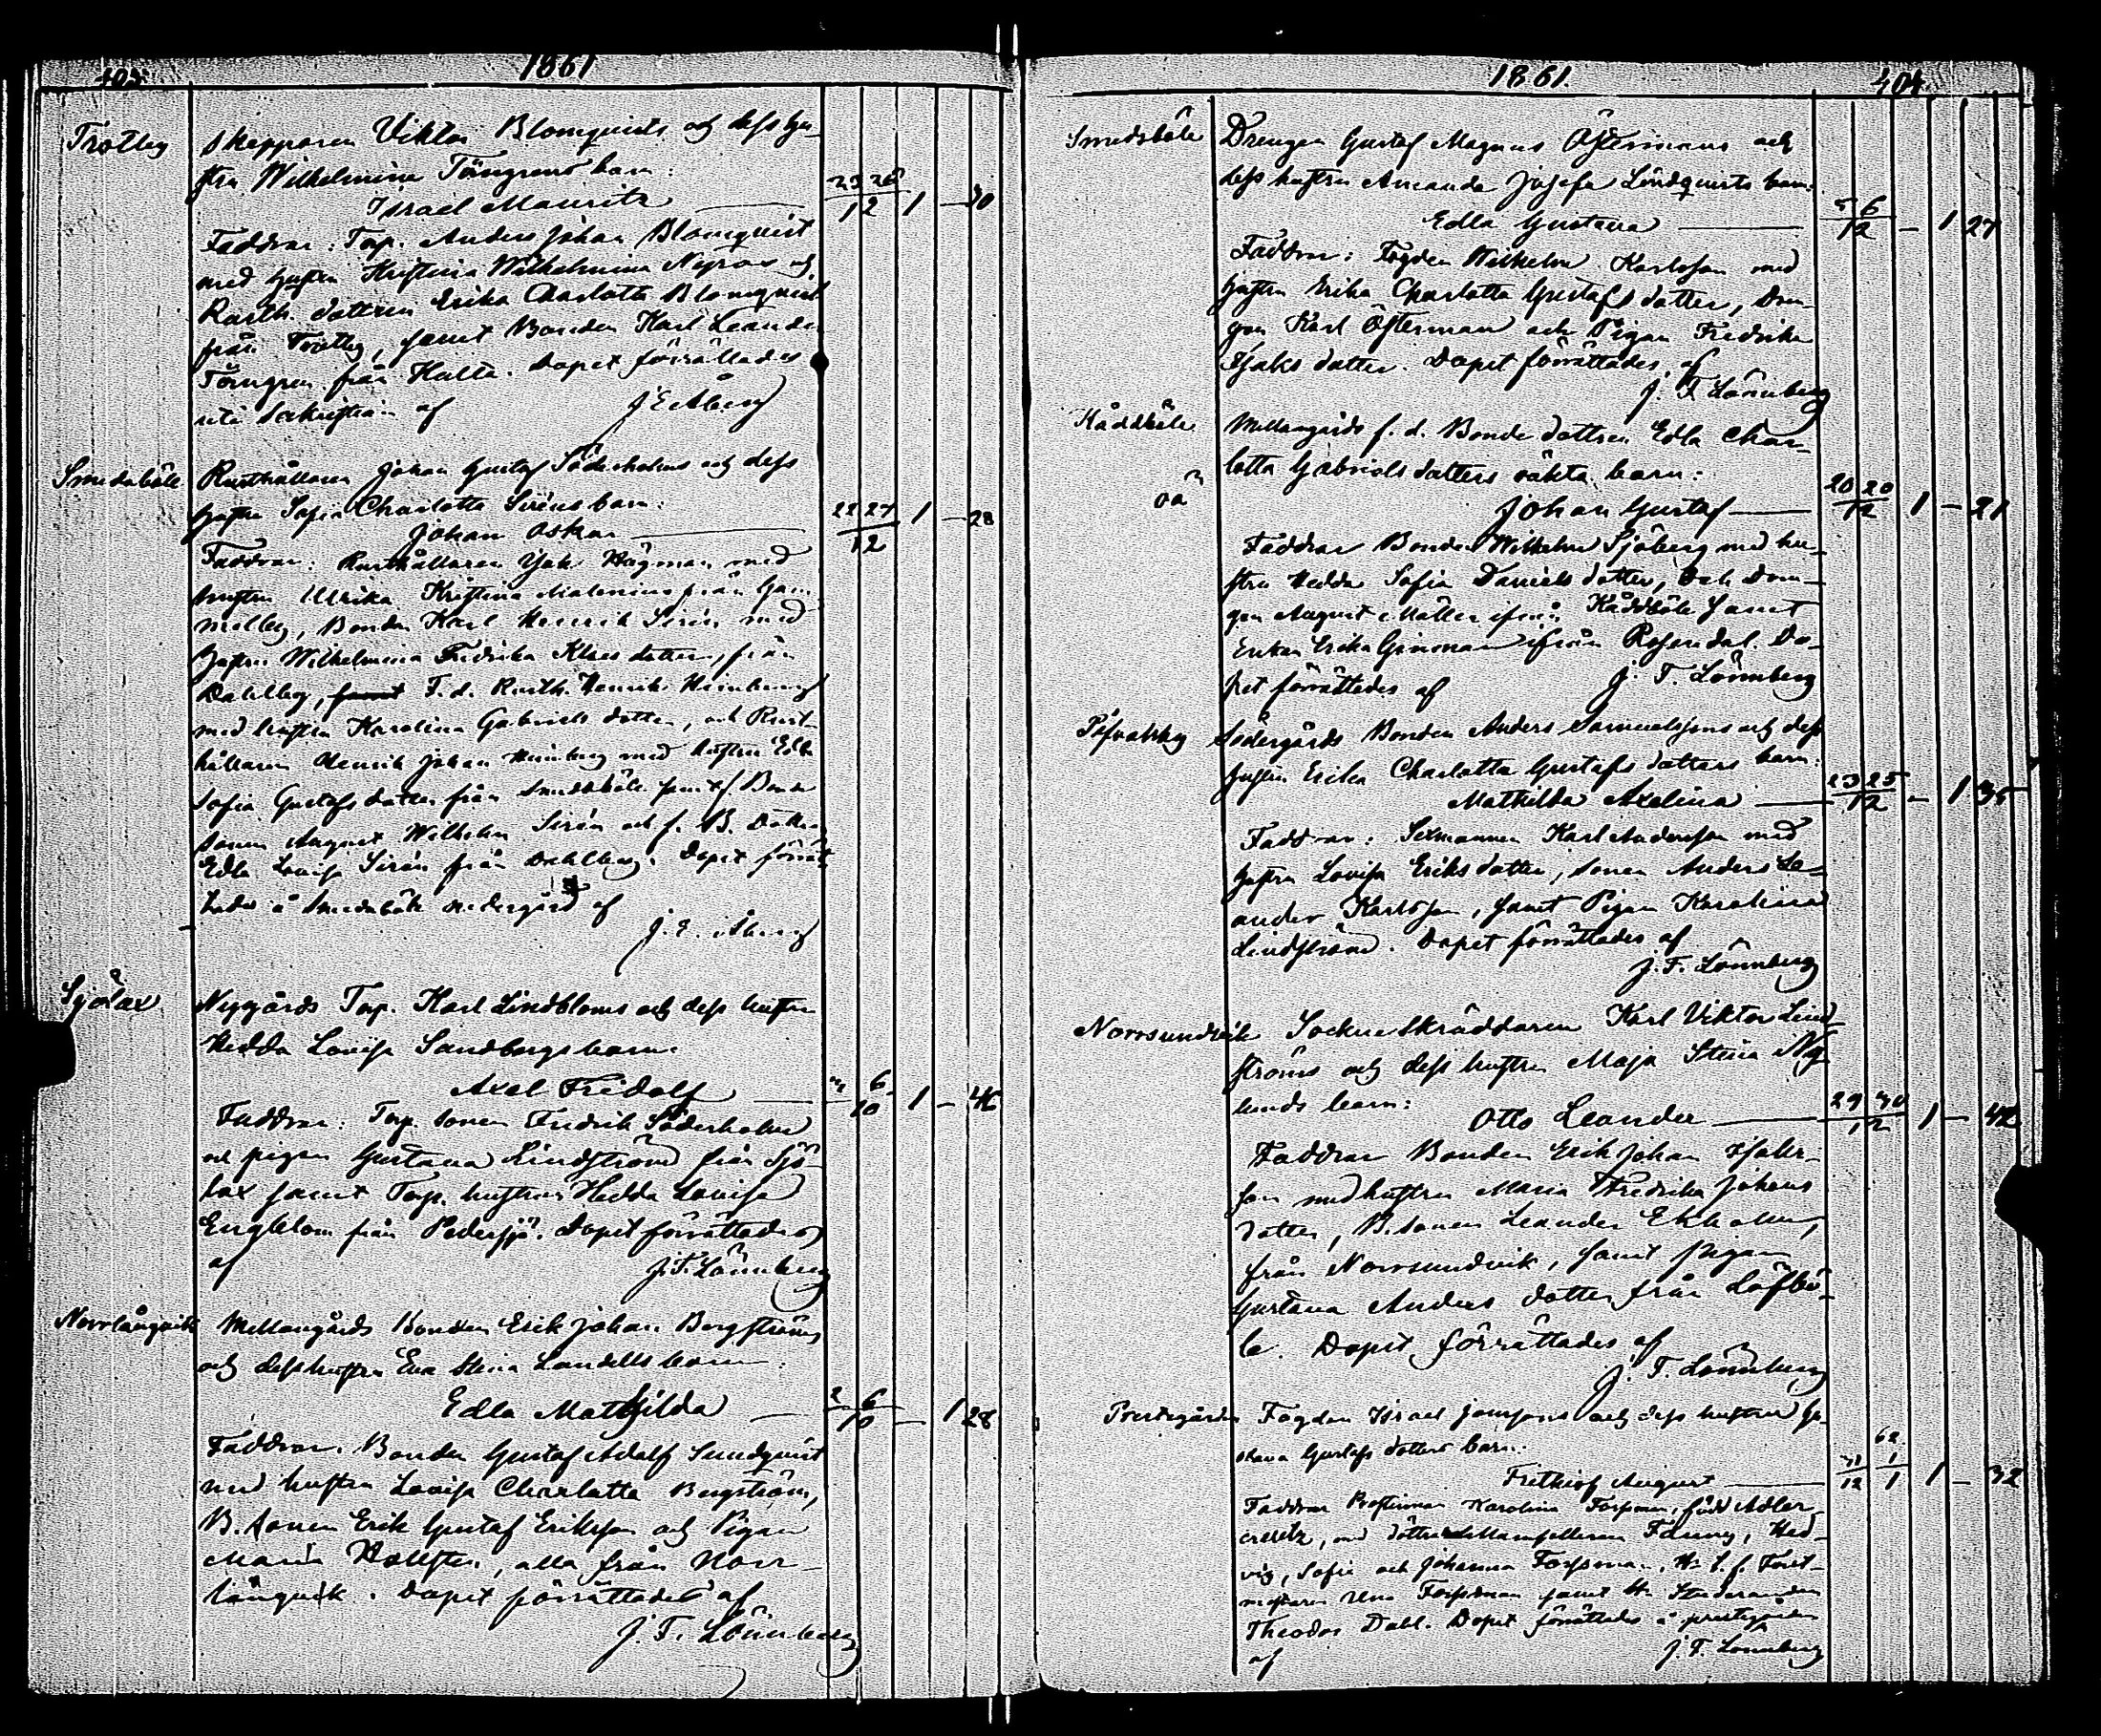 403.
1861
Trotby
Skepparen Viktor Blomquists och dess hu-
stru Wilhelmina Törngrens barn:
Israel Mauritz
23 26
12 1 — 30
Faddrar: Torp. Anders Johan Blomqvist
med hustru Kristina Wilhelmina Nyroos och
Rusth. dottren Erika Charlotta Blomqvist
från Trotby, samt Bonden Karl Leander
Törngren från Hulta. Dopet förrättades
uti Sakristian af J E Åberg
Smedsböle
Rusthållaren Johan Gustaf Söderholms och dess
hustru Sofia Charlotta Siréns barn:
Johan Oskar
22 27
12 1 — 28
Faddrar: Rusthållaren Isak Hägman med
hustru Ulrika Kristina Malenius från Gam-
melby, Bonden Karl Henrik Sirén med
hustru Wilhelmina Fredrika Klasdotter, från
Dahlby, F. d. Rusth. Henrik Heimberg
med hustru Karolina Gabriels dotter, och Rust-
hållaren Henrik Johan Heimberg med hustru Edla
Sofia Gustafs dotter från Smedsböle samt Bonde
sonen August Wilhelm Sirén och f. B. Dottren
Edla Lovisa Sirén från Dahlby. Dopet förrät-
tades å Smedsböle nedergård af
J. E. Åberg
Sjölax
Nygårds Torp. Karl Lindbloms och dess hustru
Hedda Lovisa Sandbergs barn:
Axel Fridolf
6
10 1 — 46
Faddrar: Torp. sonen Fredrik Söderholm
och pigan Gustava Lindström från Sjö-
lax samt Torp. hustrun Hedda Lovisa
Engblom från Pedersjö. Dopet förrättades
af J. F. Lönnberg
Norrlångvik
Mellangårds Bonden Erik Johan Bergströms
och dess hustru Eva Stina Landells barn:
Edla Mathilda
2 6
10 — 1 28
Faddrar. Bonden Gustaf Adolf Sundqvist
med hustru Lovisa Charlotta Bergström,
B. sonen Erik Gustaf Eriksson och Pigan
Maria Hallsten, alla från Norr-
långvik. Dopet förrättades af
J. F. Lönnberg
1861.
404.
Smedsböle
Drengen Gustaf Magnus Östermans och
dess hustru Amanda Josefa Lindqvists barn:
Edla Gustava
5 6
12 — 1 27
Faddrar: Fogden Wilhelm Karlsson med
hustru Erika Charlotta Gustafs dotter, Dren-
gen Karl Österman och Pigan Fredrika
Isaks dotter. Dopet förrättades af
J. F. Lönnberg
Kåddböle
Mellangårds f. d. Bonde dottren Edla Char-
lotta Gabriels dotters oäkta barn:
oä
Johan Gustaf
20 20
12 1 — 21
Faddrar Bonden Wilhelm Sjöberg med hu-
stru Hedda Sofia Daniels dotter, och Dren-
gen August Möller ifrån Kåddböle samt
Enkan Erika Ginman ifrån Rosendal. Do-
pet förrättades af J. F. Lönnberg
Påfvalsby
Södergårds Bonden Anders Samuelssons och dess
hustru Erika Charlotta Gustafs dotters barn:
Mathilda Axelina
23 25
12 — 1 36
Faddrar: Sexmannen Karl Andersson med
hustru Lovisa Eriks dotter, sonen Anders Le-
ander Karlsson, samt Pigan Karolina
Lindström. Dopet förrättades af
J. F. Lönnberg
Norrsundvik
Sockneskräddaren Karl Viktor Lind-
ströms och dess hustru Maja Stina Ny-
lunds barn:
Otto Leander
29 30
12 1 — 42
Faddrar Bonden Erik Johan Isaks-
son med hustru Maria Fredrika Johans
dotter, B. sonen Leander Ekholm,
från Norrsundvik, samt pigan
Gustava Anders dotter från Löfbö-
le. Dopet förrättades af
J. F. Lönnberg
Prestegården
Fogden Israel Jonssons och dess hustru Jo-
hana Gustafs dotters barn:
Frithiof August
62
31 1
12 1 1 — 32
Faddrar Prostinnan Karolina Forsman, född Adler-
creutz, med döttrar Mamsellerna Fanny, Hed-
vig, Sofie och Johanna Forsman, Hr t. f. Forst-
mästaren Uno Forssman samt Hr Studeranden
Theodor Dahl. Dopet förrättades å prestgården
af J. F. Lönnberg